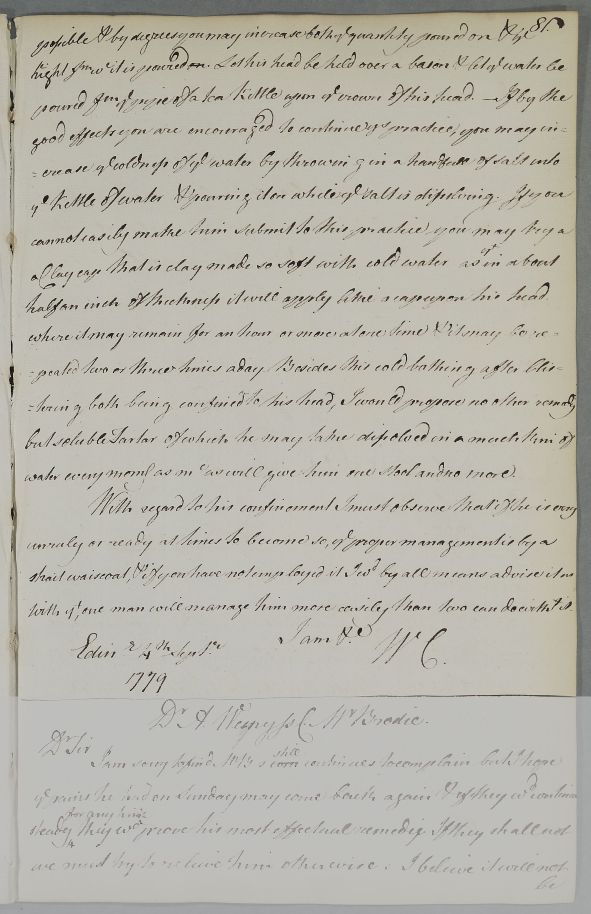 81.
possible & by degrees you may increase both ye quantity poured on & ye
hight from wch it is poured on. Let his head be held over a bason & let ye water be
poured from ye pipe of a tea kettle upon ye crown of his head. — If by the
good effects you are encouraged to continue ys practice, you may in-
-crease ye coldness of ye water by throwing in a handfull of salt into
ye kettle of water & pouring it on while ye salt is dissolving. If you
cannot easily make him submit to this practice you may try a
a Clay cap that is clay made so soft with cold water as yt in about
half an inch of thickness it will apply like a cap upon his head
where it may remain for an hour or more at one time & it may be re-
-peated two or three times a day Besides this cold bathing after blis-
-tering both being confined to his head, I would propose no other remedy
but soluble Tartar of which he may take dissolved in a mutchkin of
water every morng as mch as will give him one stool and no more.
With regard to his confinement I must observe that if he is very
unruly or ready at times to become so, ye proper management is by a
strait waiscoat, & if you have not employed it I wd by all means advise it as
with yt, one man will manage him more easily than two can do witht it.
I am &c
Edinr 4th Sepr
Wm C.
1779
Dr A. Wemyss C. Mr Brodie.
Dr Sir
I am sorry to find Mr B's still continues to complain but I hope
ye pains he had on Sunday may come back again & if they wd continue
steady for any time they wd prove his most effectual remedy If they shall not
we must try to relieve him otherwise. I believe it will not
be